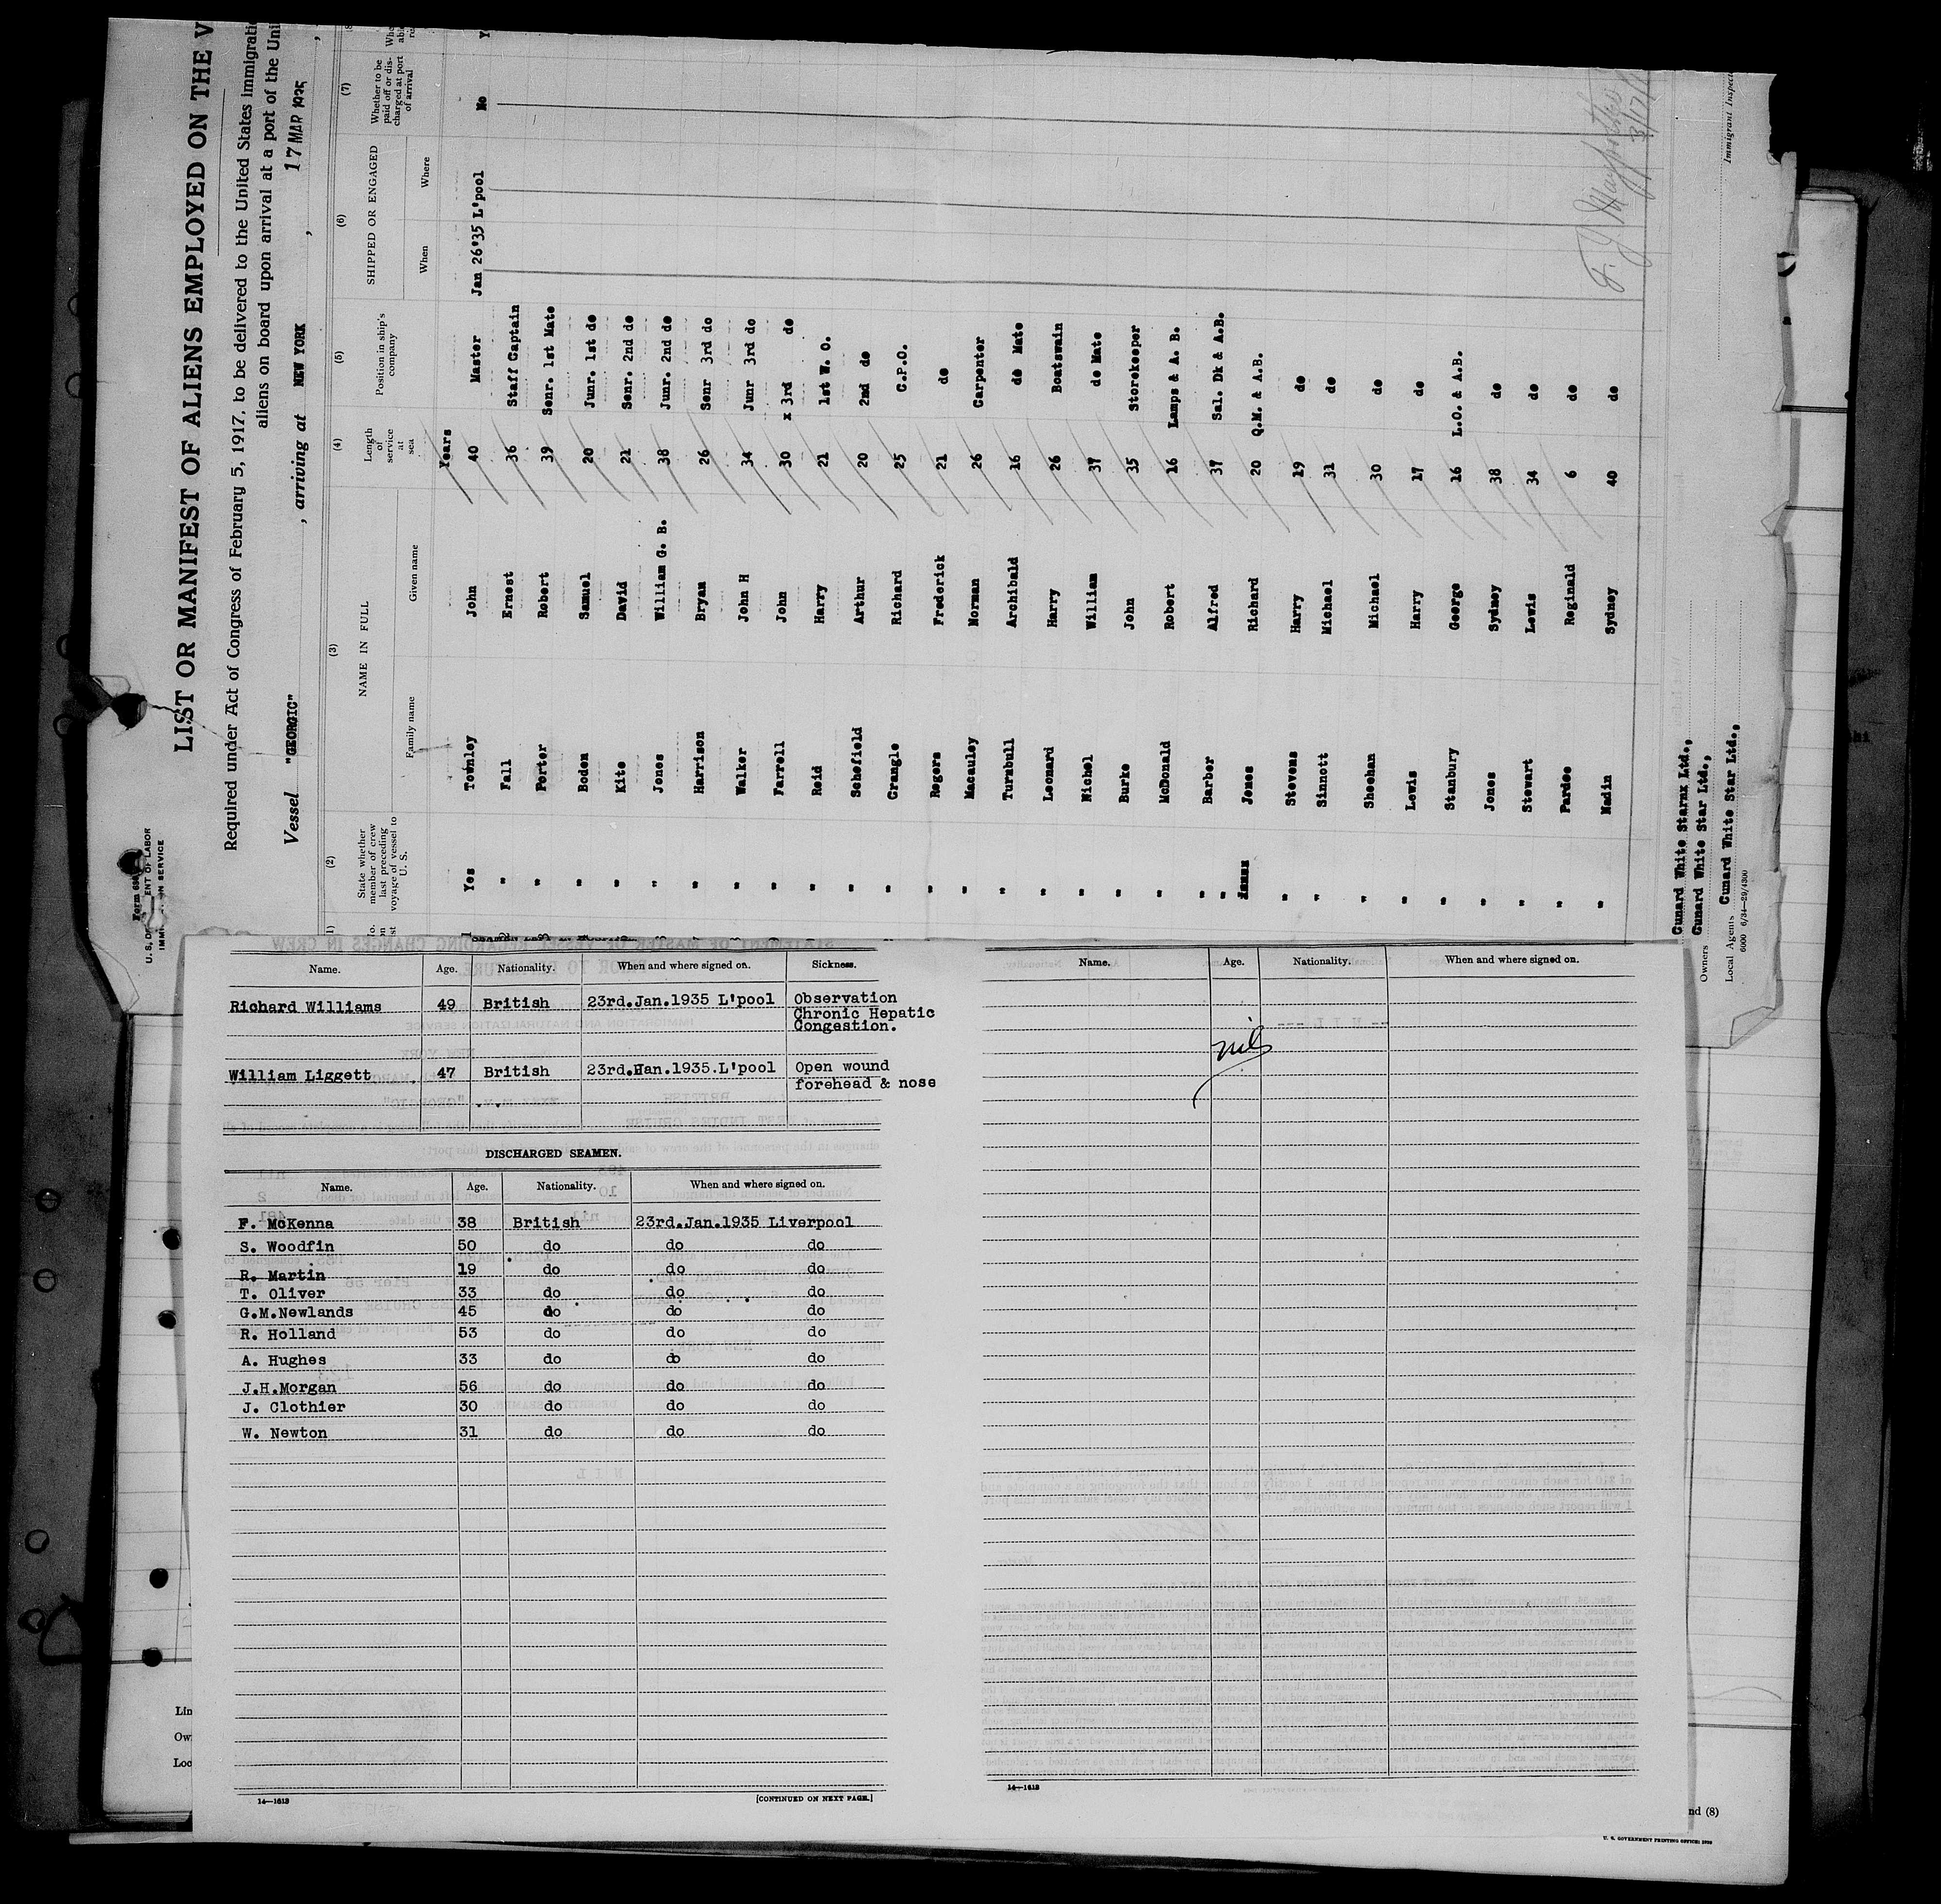 LIST OR MANIFEST OF ALIENS EMPLOYED ON THE V
Required under Act of Congress of February 5, 1917, to be delivered to the United States immigrati
aliens on board upon arrival at a port of the Uni
Vessel "GEORGIC" , arriving at NEW YORK , 17 MAR 1935 ,
U. S. D ENT OF LABOR
(2) (3) (4) (5) (6) (7)
State whether member of crew last preceding voyage of vessel to U. S.
NAME IN FULL
Family name Given name
Length of service at sea
Position in ship's company
SHIPPED OR ENGAGED
When Where
Whether to be paid off or discharged at port of arrival
Years
Yes Townley John 40 Master Jan 26"35 L'pool No
" Fall Ernest 36 Staff Captain
" Porter Robert 39 Senr. 1st Mate
" Boden Samuel 20 Junr. 1st do
" Kite David 21 Senr. 2nd do
" Jones William G. B. 38 Junr. 2nd do
" Harrison Bryan 26 Senr 3rd do
" Walker John H 34 Junr 3rd do
" Farrell John 30 x 3rd do
" Reid Harry 21 1st W. O.
" Schofield Arthur 20 2nd do
" Crangle Richard 25 C.P.O.
" Rogers Frederick 21 do
" Macauley Norman 26 Carpenter
" Turnbull Archibald 16 do Mate
" Leonard Harry 26 Boatswain
" Nichol William 37 do Mate
" Burke John 35 Storekeeper
" McDonald Robert 16 Lamps & A. B.
" Barber Alfred 37 Sal. Dk & A.B.
" Jones Richard 20 Q.M. & A.B.
" Stevens Harry 19 do
" Sinnott Michael 31 do
" Sheehan Michael 30 do
" Lewis Harry 17 do
" Stanbury George 16 L.O. & A.B.
" Jones Sydney 38 do
" Stewart Lewis 34 do
" Pardoe Reginald 6 do
" Madin Sydney 40 do
Cunard White Starxx Ltd.,
Owners Cunard White Star Ltd.,
Local Agents Cunard White Star Ltd.,
6000 6/34—29/4300
Immigrant Inspec
Name. Age. Nationality. When and where signed on. Sickness.
Richard Williams 49 British 23rd.Jan.1935 L'pool Observation
Chronic Hepatic
Congestion.
William Liggett 47 British 23rd.Han.1935.L'pool Open wound
forehead & nose
DISCHARGED SEAMEN.
Name. Age. Nationality. When and where signed on.
F. McKenna 38 British 23rd.Jan.1935 Liverpool
S. Woodfin 50 do do do
R. Martin 19 do do do
T. Oliver 33 do do do
G.M.Newlands 45 do do do
R. Holland 53 do do do
A. Hughes 33 do do do
J.H.Morgan 56 do do do
J. Clothier 30 do do do
W. Newton 31 do do do
14—1613 [CONTINUED ON NEXT PAGE.]
Name. Age. Nationality. When and where signed on.
nil
14—1613
Lin
Ow
Loc
nd (8)
U. S. GOVERNMENT PRINTING OFFICE: